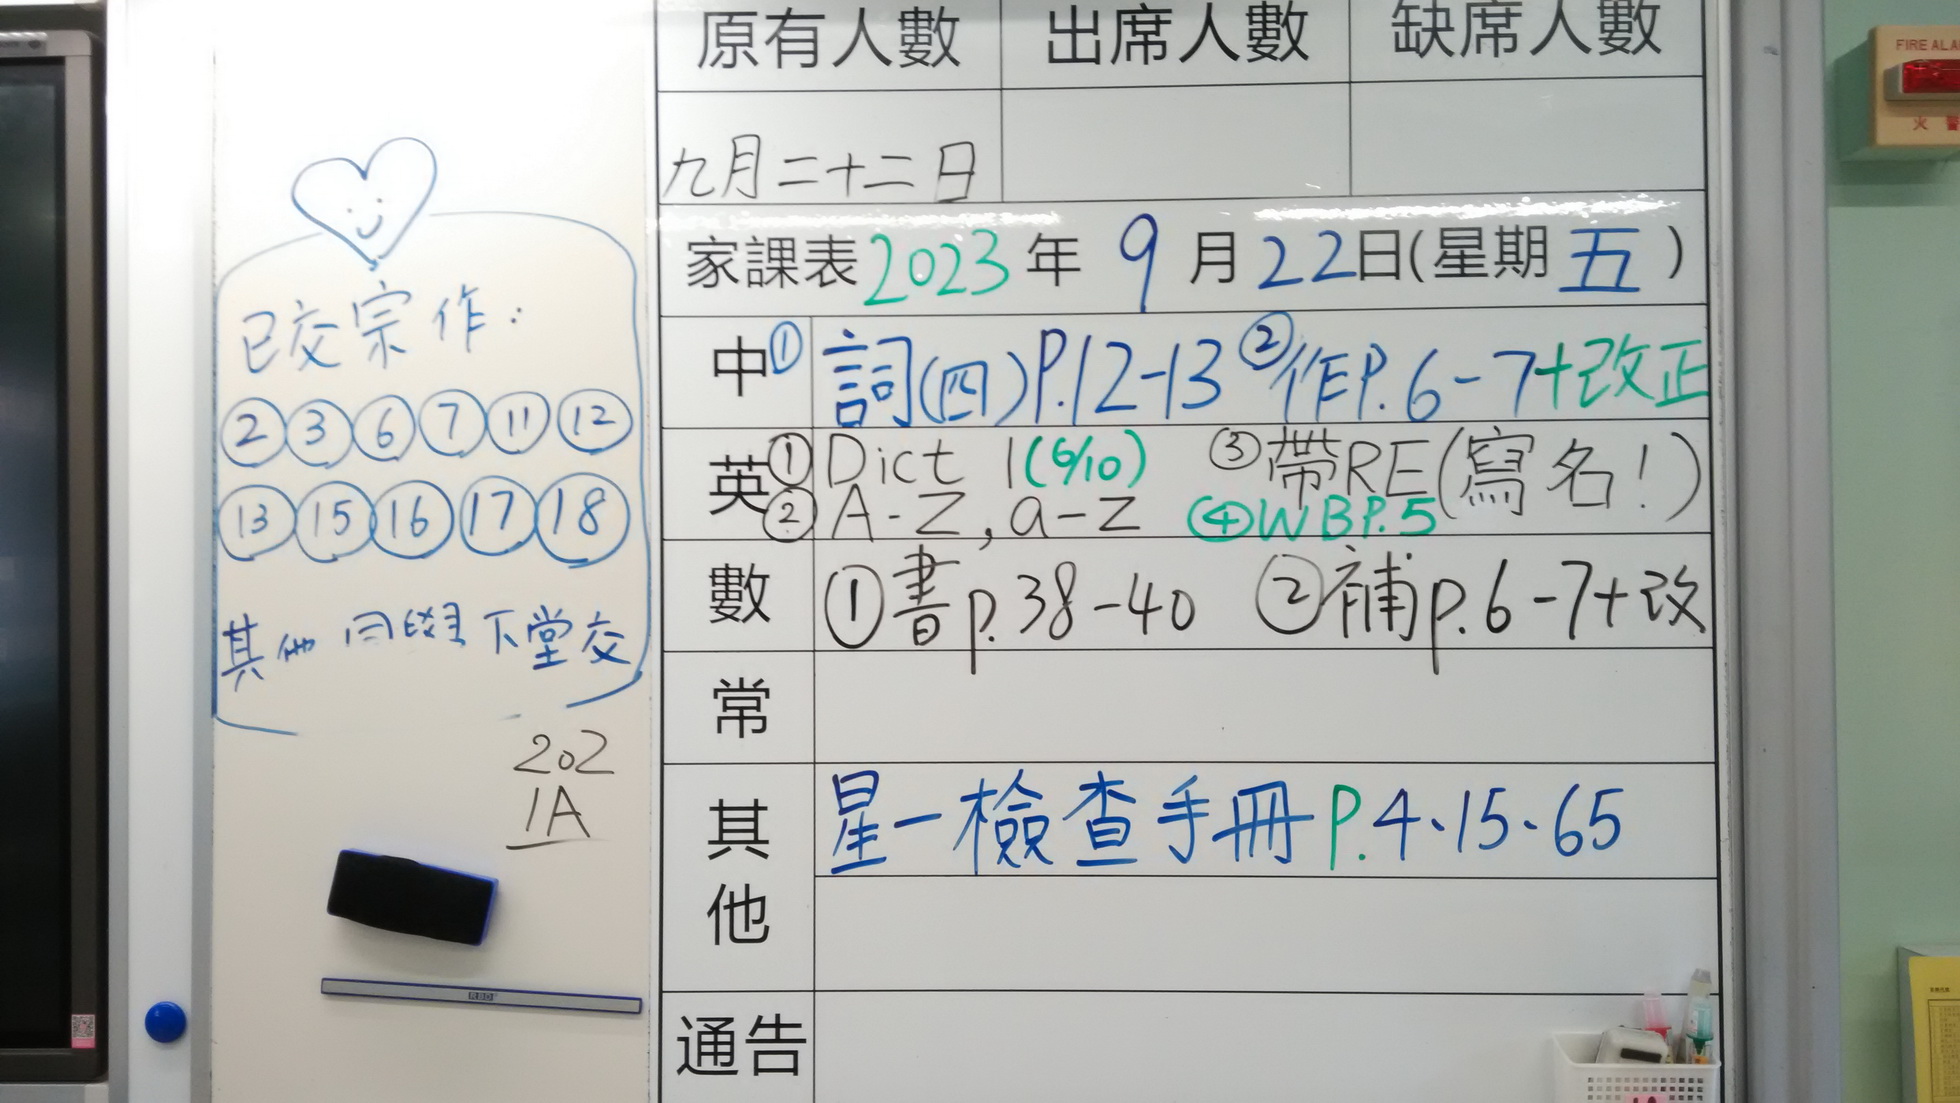 原有人數 出席人數 缺席人數
九月二十二日
家課表 2023 年 9 月 22 日(星期 五 )
中 ① 詞(四)P.12-13 ②作P.6-7+改正
英 ① Dict 1(6/10) ③帶RE(寫名!)
② A-Z, a-z ④WBP.5
數 ①書p.38-40 ②補p.6-7+改
常
其他 星一檢查手冊P.4、15、65
通告
已交宗作:
② ③ ⑥ ⑦ ⑪ ⑫
⑬ ⑮ ⑯ ⑰ ⑱
其他同學下堂交
202
1A
RBD
FIRE ALA
火